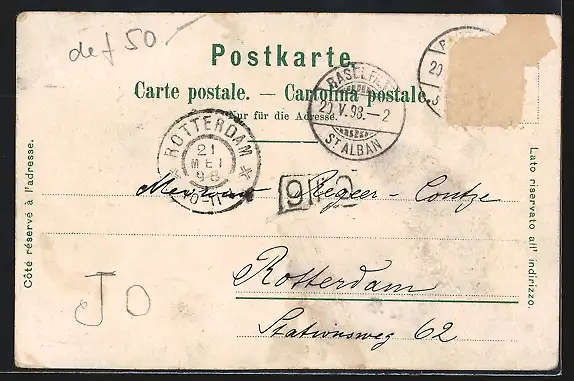 def 50
Postkarte.
Carte postale. — Cartolina postale.
Nur für die Adresse.
BASEL
20.V.98.–2
ST. ALBAN
20
ROTTERDAM
21
MEI
98
10-11
Côté réservé à l'adresse.
Lato riservato all' indirizzo.
Regeer - Contze
Rotterdam
Stationsweg 62
JO